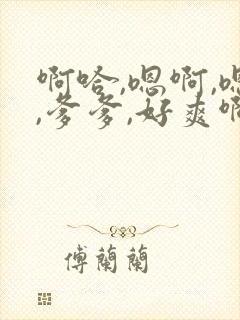 啊哈,嗯啊,嗯
,爹爹,好爽啊
傅蘭蘭